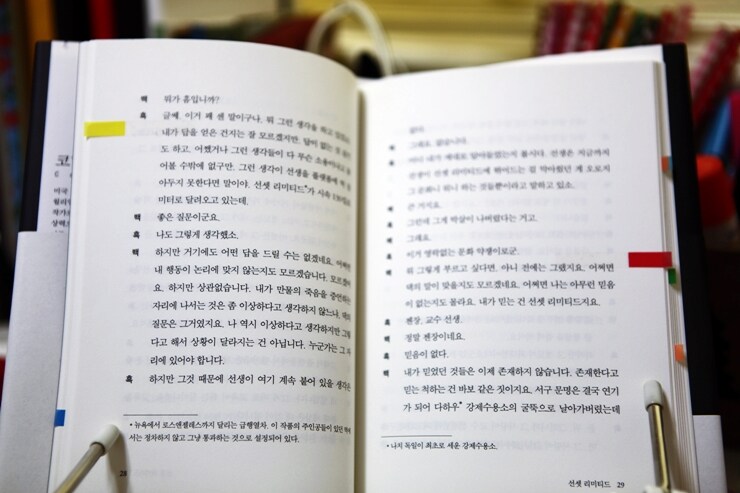 코
미국
백 뭐가 흠입니까?
흑 글쎄. 이거 꽤 센 말이구나. 뭐 그런 생각을 하고
내가 답을 얻은 건지는 잘 모르겠지만, 답이 없는
도 하고. 어쨌거나 그런 생각들이 다 무슨 소용이냐고
어볼 수밖에 없구만. 그런 생각이 선생을 플랫폼에
아두지 못한다면 말이야. 선셋 리미티드*가 시속
미터로 달려오고 있는데.
백 좋은 질문이군요.
흑 나도 그렇게 생각했소.
백 하지만 거기에도 어떤 답을 드릴 수는 없겠네요. 어쩌면
내 행동이 논리에 맞지 않는지도 모르겠습니다. 모르겠어
요. 하지만 상관없습니다. 내가 만물의 죽음을 증언하는
자리에 나서는 것은 좀 이상하다고 생각하지 않느냐,
질문은 그거였지요. 나 역시 이상하다고 생각하지만 그렇
다고 해서 상황이 달라지는 건 아닙니다. 누군가는 그 자
리에 있어야 합니다.
흑 하지만 그것 때문에 선생이 여기 계속 붙어 있을 생각은
* 뉴욕에서 로스앤젤레스까지 달리는 급행열차. 이 작품의 주인공들이 있던 역에
서는 정차하지 않고 그냥 통과하는 것으로 설정되어 있다.
28
없다.
그래요. 없습니다.
어디 내가 제대로 알아들었는지 봅시다. 선생은 지금까지
선생이 선셋 리미티드에
그 문화니 뭐니 하는 것들뿐이라고 말하고 있소.
큰 거지요.
그런데 그게 박살이 나버렸다는 거고.
그래요.
이거 영락없는 문화 약쟁이로군.
뭐 그렇게 부르고 싶다면. 아니 전에는 그랬지요. 어쩌면
댁의 말이 맞을지도 모르겠네요. 어쩌면 나는 아무런 믿음
이 없는지도 몰라요. 내가 믿는 건 선셋 리미티드지요.
흑 젠장, 교수 선생.
백 정말 젠장이네요.
흑 믿음이 없다.
백 내가 믿었던 것들은 이제 존재하지 않습니다. 존재한다고
믿는 척하는 건 바보 같은 짓이지요. 서구 문명은 결국 연기
가 되어 다하우* 강제수용소의 굴뚝으로 날아가버렸는데
* 나치 독일이 최초로 세운 강제수용소.
선셋 리미티드 29